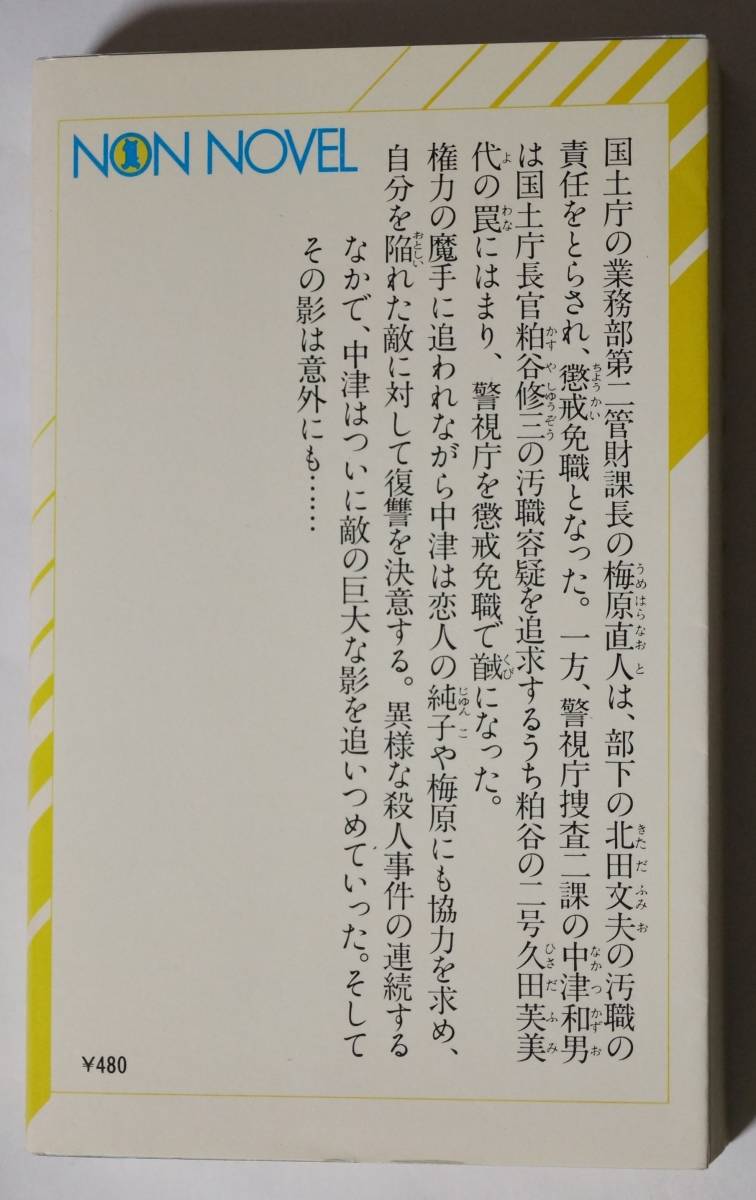 NON NOVEL
国土庁の業務部第二管財課長の梅原直人は、部下の北田文夫の汚職の
責任をとらされ、懲戒免職となった。一方、警視庁捜査二課の中津和男
は国土庁長官粕谷修三の汚職容疑を追求するうち粕谷の二号久田芙美
代の罠にはまり、警視庁を懲戒免職で馘になった。
権力の魔手に追われながら中津は恋人の純子や梅原にも協力を求め、
自分を陥れた敵に対して復讐を決意する。異様な殺人事件の連続する
なかで、中津はついに敵の巨大な影を追いつめていった。そして
その影は意外にも……
¥480